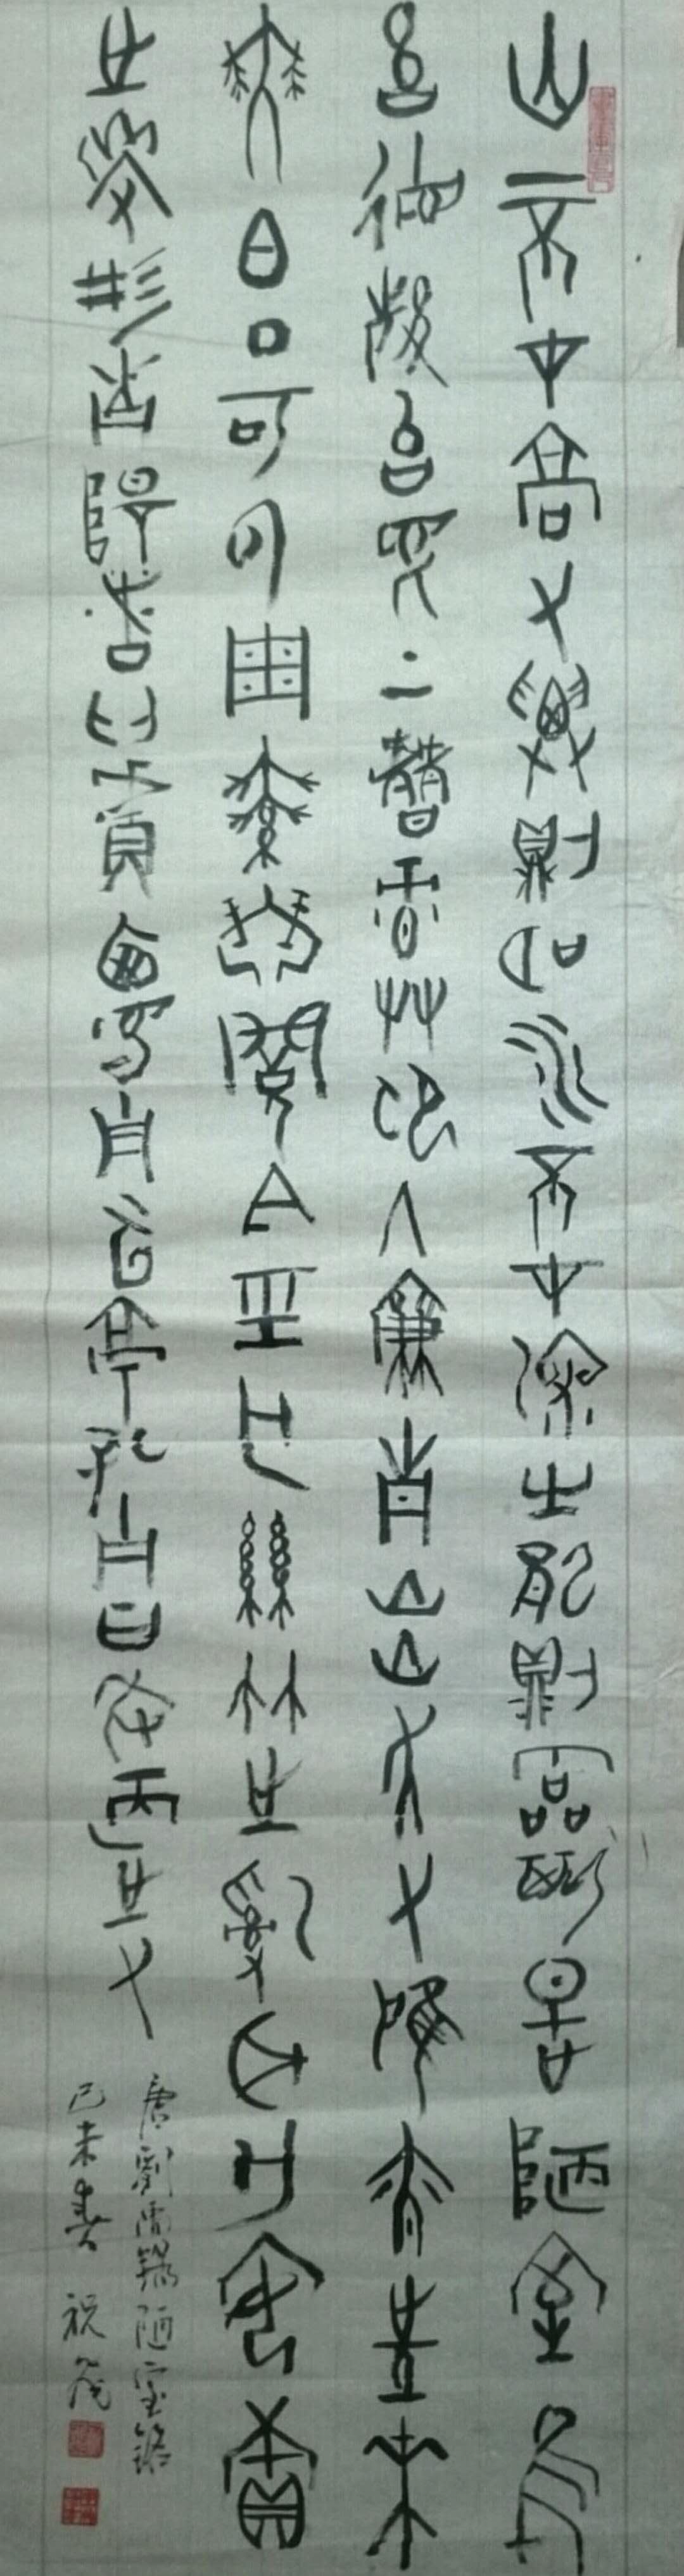 山不在高有僊則名水不在深有龍則靈斯是陋室惟
吾德馨苔痕上階綠草色入簾青談笑有鴻儒往來
無白丁可以調素琴閱金經無絲竹之亂耳無案牘
之勞形南陽諸葛廬西蜀子雲亭孔子曰何陋之有
唐劉禹錫陋室銘
己未春 祝